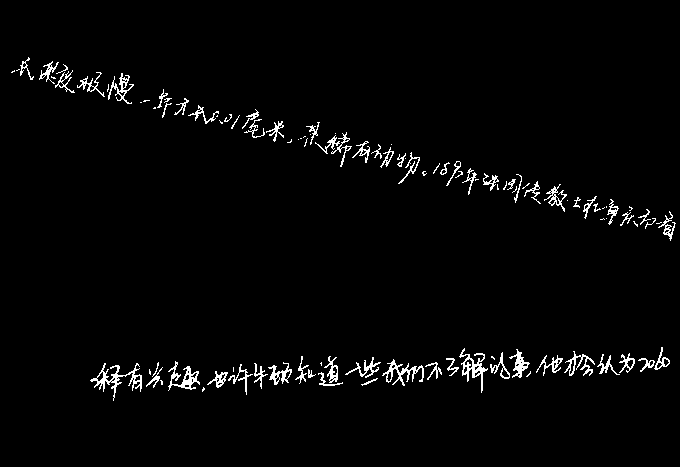 长速度极慢一年才长0.01毫米,某稀有动物。189年法国传教士在重庆市首
释有兴趣,也许牛顿知道一些我们不了解的事,他才会认为2060